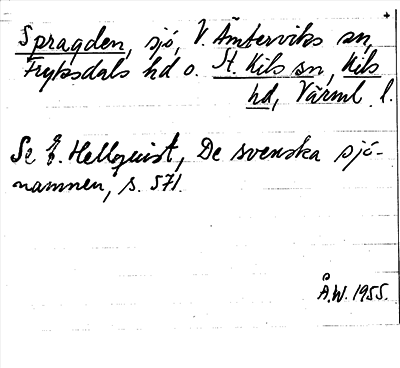 Spragden, sjö, V. Ämterviks sn,
Fryksdals hd o. St. Kils sn, Kils
hd, Värml. l.
Se E. Hellquist, De svenska sjö-
namnen, s. 571.
Å.W. 1955.